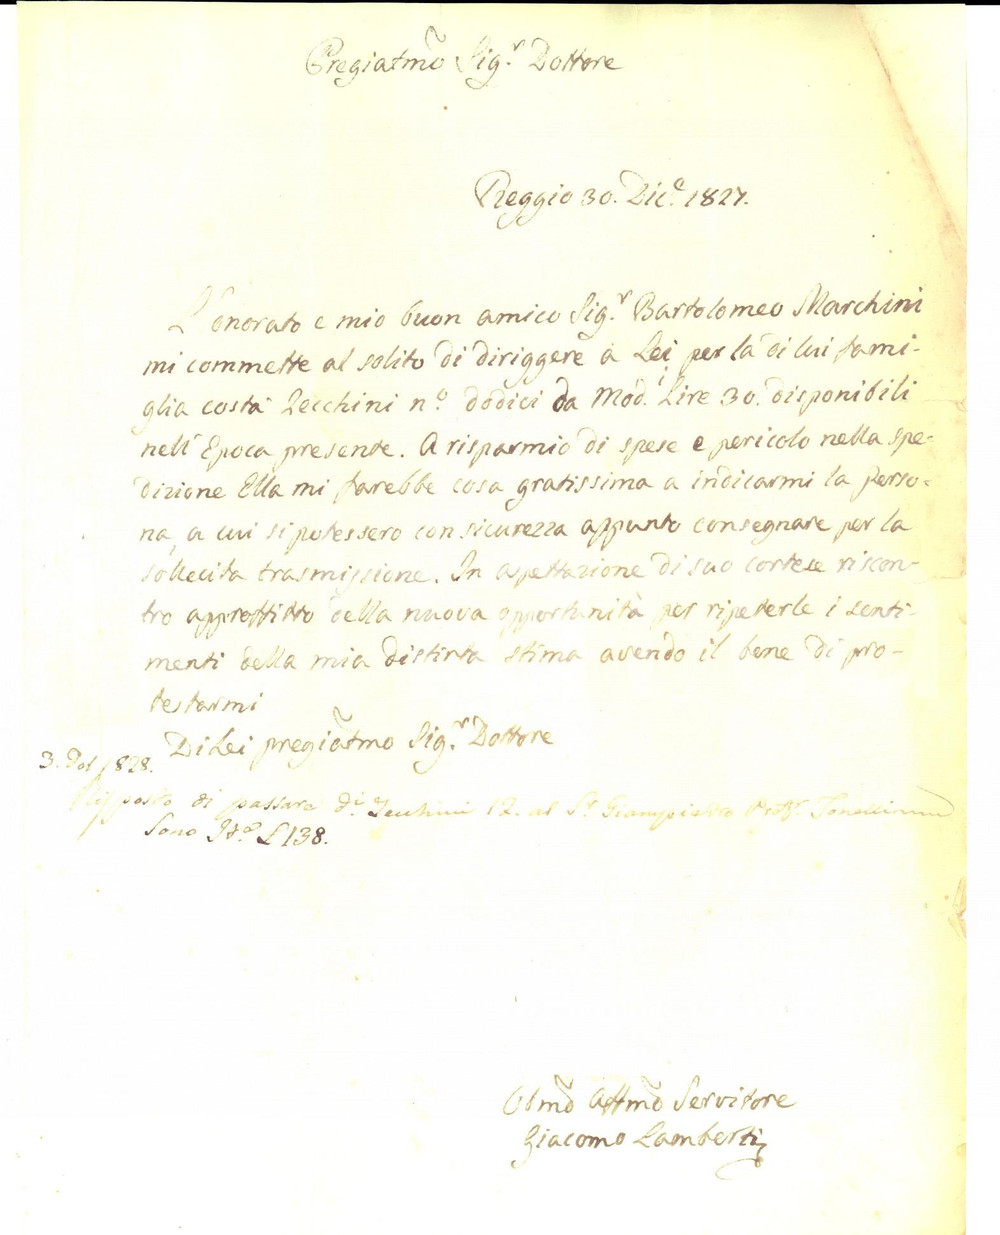 Pregiatmo Sigr. Dottore
Reggio 30. Dice. 1827.
L'onorato e mio buon amico Sigr. Bartolomeo Marchini
mi commette al solito di diriggere a Lei per la di lui fami-
glia costà Zecchini no. dodici da Modi. Lire 30. disponibili
nell'Epoca presente. A risparmio di spese e pericolo nella spe-
dizione Ella mi farebbe cosa gratissima a indicarmi la perso-
na, a cui si potessero con sicurezza appunto consegnare per la
sollecita trasmissione. In aspettazione di suo cortese riscon-
tro approffitto della nuova opportunità per ripeterle i senti-
menti della mia distinta stima avendo il bene di pro-
testarmi
Di Lei pregiatmo Sigr. Dottore
3. 1828.
Risposto di passare di. Zecchini 12. al Sr. Giampietro
Sono L 138.
Obmo Affmo Servitore
Giacomo Lamberti